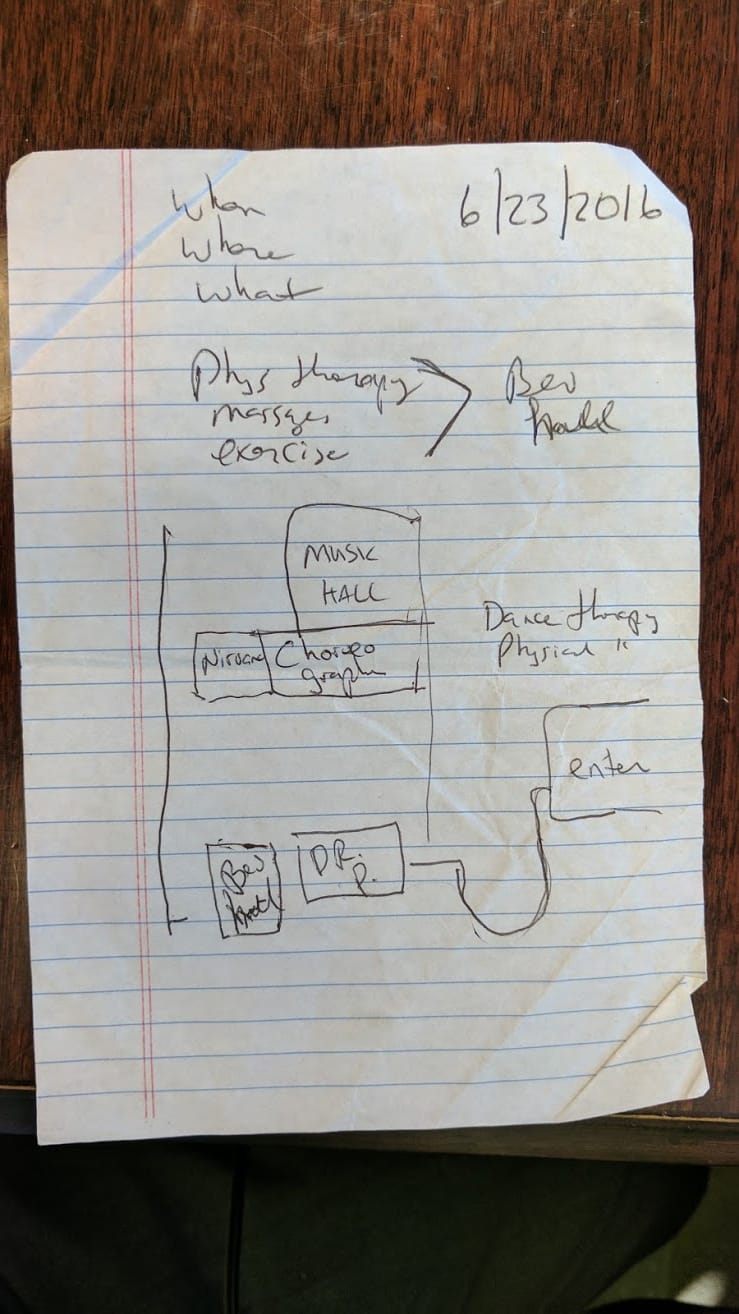 6/23/2016
When
Where
What
Phys therapy
massages
exercise
Bev
MUSIC
HALL
Choreo
graph
Dance therapy
Physical "
enter
Bev
DR.
P.